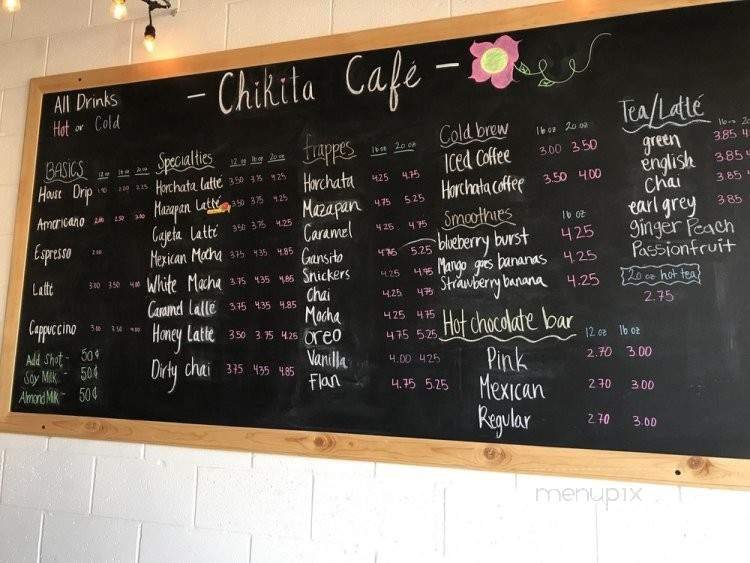 - Chikita Café -
All Drinks
Hot or Cold
BASICS 12 oz 16 oz 20 oz
House Drip 2.00 2.25
Americano 2.00 2.50 3.00
Espresso 2.00
Latté 3.00 3.50 4.00
Cappuccino 3.00 3.50 4.00
Add Shot - 50¢
Soy Milk - 50¢
Almond Milk - 50¢
Specialties 12 oz 16 oz 20 oz
Horchata latté 3.50 3.75 4.25
Mazapan Latté 3.50 3.75 4.25
Cajeta Latté 3.50 3.75 4.25
Mexican Mocha 3.75 4.35 4.85
White Mocha 3.75 4.35 4.85
Caramel Latté 3.75 4.35 4.85
Honey Latte 3.50 3.75 4.25
Dirty chai 3.75 4.35 4.85
frappes 16 oz 20 oz
Horchata 4.25 4.75
Mazapan 4.75 5.25
Caramel 4.25 4.75
Gansito 4.75 5.25
Snickers 4.25 4.95
Chai 4.25 4.75
Mocha 4.25 4.75
Oreo 4.75 5.25
Vanilla 4.00 4.25
Flan 4.75 5.25
Cold brew 16 oz 20 oz
Iced Coffee 3.00 3.50
Horchata coffee 3.50 4.00
Smoothies 16 oz
blueberry burst 4.25
Mango goes bananas 4.25
Strawberry banana 4.25
Hot chocolate bar 12 oz 16 oz
Pink 2.70 3.00
Mexican 2.70 3.00
Regular 2.70 3.00
Tea/Latté
16 oz
green 3.85
english 3.85
Chai 3.85
earl grey 3.85
ginger Peach
Passionfruit
20 oz hot tea
2.75
menupix